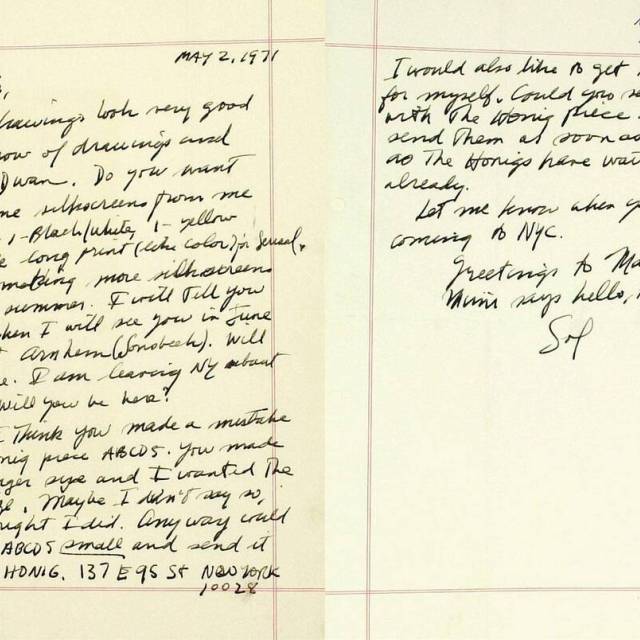 MAY 2, 1971
drawings look very good
show of drawings and
Dwan. Do you want
me silkscreens from me
1-Black/white, 1-yellow
long print (like color) for Sensel,
making more silkscreens
summer. I will tell you
when I will see you in June
Arnhem (Sonsbeek). Will
I am leaving NY about
will you be here?
I think you made a mistake
piece ABCD5. You made
size and I wanted the
Maybe I didn't say so,
I did. Anyway could
ABCD5 small and send it
HONIG. 137 E 95 St NEW YORK
10028
I would also like to get
for myself. Could you
with the Honig piece
send them as soon as
as The Honigs have
already.
Let me know when
coming to NYC.
Greetings to
Mimi says hello,
Sol